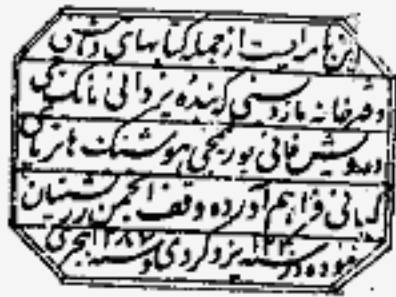 این نامه ایست از جمله کتابهای دساتیری
و هنرخانه مازدیسنی که بنده یزدانی مانکجی
درویش فانی پور لیمجی هوشنگ هاتریای
کیانی فراهم آورده وقف انجمن زردشتیان
نموده در سنه ۱۲۴۰ یزدگردی و سنه ۱۲۸۷ هجری